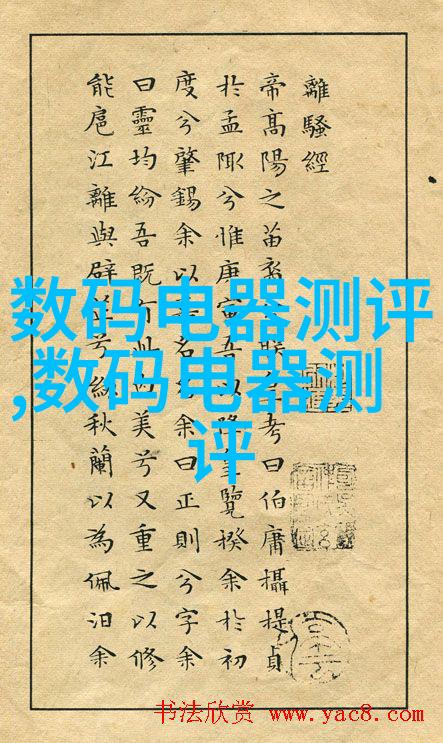 離騷經
帝高陽之苗裔朕考曰伯庸攝提貞
於孟陬兮惟庚寅吾以降皇覽揆余於初
度兮肇錫余以名余曰正則兮字余
曰靈均紛吾既有此美兮又重之以修
能扈江離與辟兮紉秋蘭以為佩汩余
数码电器测评
,数码电器测
评
书法欣赏 www.yac8.com